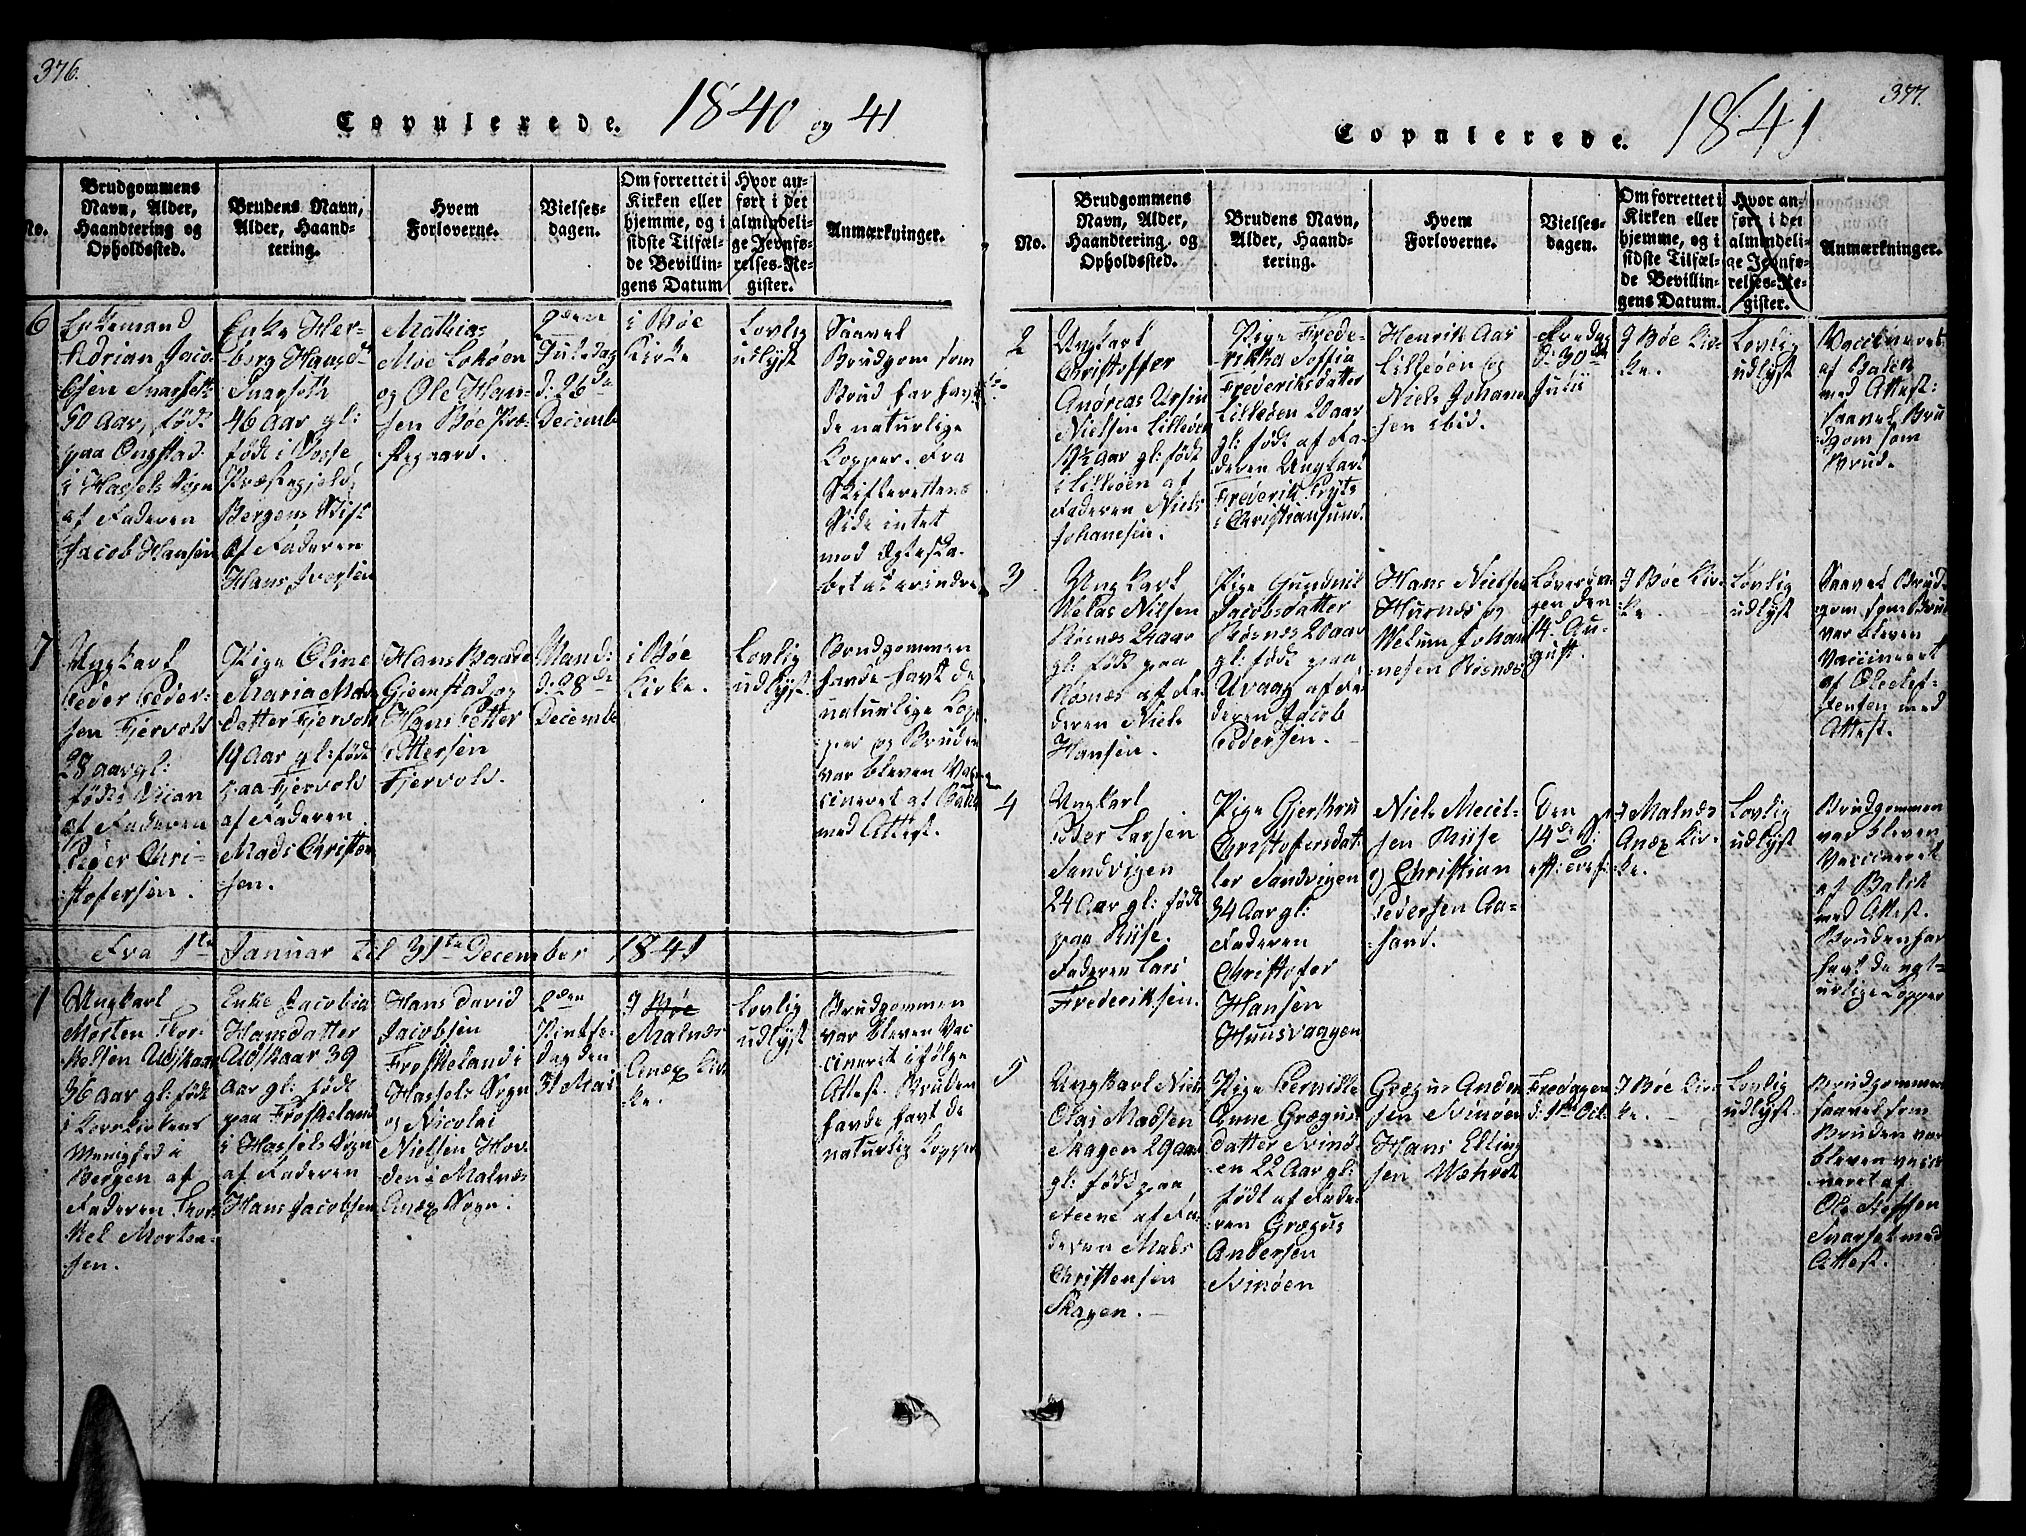 376.
Copulerede. 1840 og 41
No.
Brudgommens
Navn, Alder,
Haandtering og
Opholdssted.
Brudens Navn,
Alder, Haand-
tering.
Hvem
Forloverne.
Vielses-
dagen.
Om forrettet i
Kirken eller
hjemme, og i
sidste Tilfæl-
de Bevillin-
gens Datum
Hvor an-
ført i det
almindeli-
ge Jevnfø-
relses-Re-
gister.
Anmærkninger.
6
Enkemand
Adrian Jaco-
bsen Svarsett
50 Aar, født
paa Ongstad
i Hassels Sogn
af Faderen
Jacob Hansen
Enke Her-
borg Hansd
46 Aar gl:
født i Vosse
Præstegjeld,
Bergens Stift
af Faderen
Hans Iversen
Mathias
Moe Lohøen
og Ole Han-
sen Bøe Præ-
stegaard.
2den
Juledag
d: 26de
Decemb
i Bøe
Kirke
Lovlig
udlyst
Saavel
Brudgom som
Brud har havt
de naturlige
Kopper. Fra
Skifterettens
Side intet
mod Ægteska-
bet at erindre
7
Ungkarl
Peder Peder-
sen Fjervold
28 aar gl:
født i Vian
af Faderen
Peder Chri-
stofersen.
Pige Oline
Maria Mads
datter Fjervold
19 Aar gl: født
paa Fjervold
af Faderen
Mads Christen
sen.
Hans Baade
Gjemstad og
Hans Petter
Pettersen
Fjervold.
Mand:
d: 28de
Decembe
i Bøe
Kirke.
Lovlig
udlyst.
Brudgommen
havde havt de
naturlige Kop-
per og Bruden
var bleven Vac-
cineret af Balch
med Attest.
Fra 1te Januar til 31te December 1841
1
Ungkarl
Morten Thor-
kelsen Udskaar
36 Aar gl: født
i Korskirkens
Menighed i
Bergen af
Faderen Thor-
kel Morten-
sen.
Enke Jacobia
Hansdatter
Udskaar 39
Aar gl: født
paa Froskeland
i Hassels Sogn
af Faderen
Hans Jacobsen
Hans David
Jacobsen
Froskeland i
Hassels Sogn
og Nicolai
Nielsen Hov-
den i Malnes
Anex Sogn.
2den
Pintse-
dag den
31 Mai
I Bøe
Malnæs
Anex Kir-
ke.
Lovlig
udlyst
Brudgommen
var bleven Vac
cineret ifølge
Attest. Bruden
havde havt de
naturlig Kopper
377.
Copulerede. 1841
No.
Brudgommens
Navn, Alder,
Haandtering og
Opholdssted.
Brudens Navn,
Alder, Haand-
tering.
Hvem
Forloverne.
Vielses-
dagen.
Om forrettet i
Kirken eller
hjemme, og i
sidste Tilfæl-
de Bevillin-
gens Datum.
Hvor an-
ført i det
almindeli-
ge Jevnfø-
relses-Re-
gister.
Anmærkninger.
2
Ungkarl
Christoffer
Andreas Ursin
Nielsen Lilleøen
19½ Aar gl: født
i Lilleøen af
Faderen Niels
Johanesen.
Pige Frede-
rikka Soffia
Frederiksdatter
Lilleøen 20 aar
gl: født af Fa-
deren Ungkarl
Frederik Fryts
i Christiansund.
Henrik Aas
Lilleøen og
Niels Johane-
sen ibid.
Fredag
d: 30te
Julii
I Bøe Kir-
ke.
Lovlig
udlyst
Vaccineret
af Balch
med Attest:
saavel Bru
dgom som
Brud.
3
Ungkarl
Nielsen
24 aar
gl: født paa
af Fa
deren Niels
Hansen.
Pige Gundvil
Jacobsdatter
20 aar
gl: født paa
Uvaag af Fa
deren Jacob
Pedersen.
Hans Nielsen
og
Johan
nesen
Løverda-
gen den
14d. Au-
gust.
I Bøe Kir-
ke.
Lovlig
udlyst
Saavel Brud
gom som Brud
var bleven
Vaccineret
af Ole Stef-
fensen med
Attest.
4
Ungkarl
Peder Larsen
Sandvigen
24 Aar gl: født
paa Riise.
Faderen Lars
Frederiksen.
Pige Gjertru
Christofersdat-
ter Sandvigen
34 Aar gl:
Faderen
Christofer
Hansen
Huusvaagen
Niels
sen Riise
og Christian
Pedersen Aa-
sand.
Den
14de S:
eft: Tref.
I Malnæs
Anex Kir-
ke.
Lovlig
udlyst
Brudgommen
var bleven
Vaccineret
af Balch
med Attest.
Bruden har
havt de nat-
urlige Kopper
5
Ungkarl Niels
Olai Madsen
Skagen 29 aar
gl: født paa
Steene af Fa-
deren Mads
Christensen
Skagen.
Pige Pernille
Anne Græguse
datter Svinø-
en 22 Aar gl:
født af Fade-
ren Græguse
Andersen
Svinøen
Græguse Ander
sen Svinøen
Hans Elling
sen
Fredagen
d: 1te Oct
I Bøe Kir-
ke.
Lovlig
udlyst.
Brudgommen
saavel som
Bruden var
bleven vacci-
neret af
Ole Steffen
Svarset med
Attest.